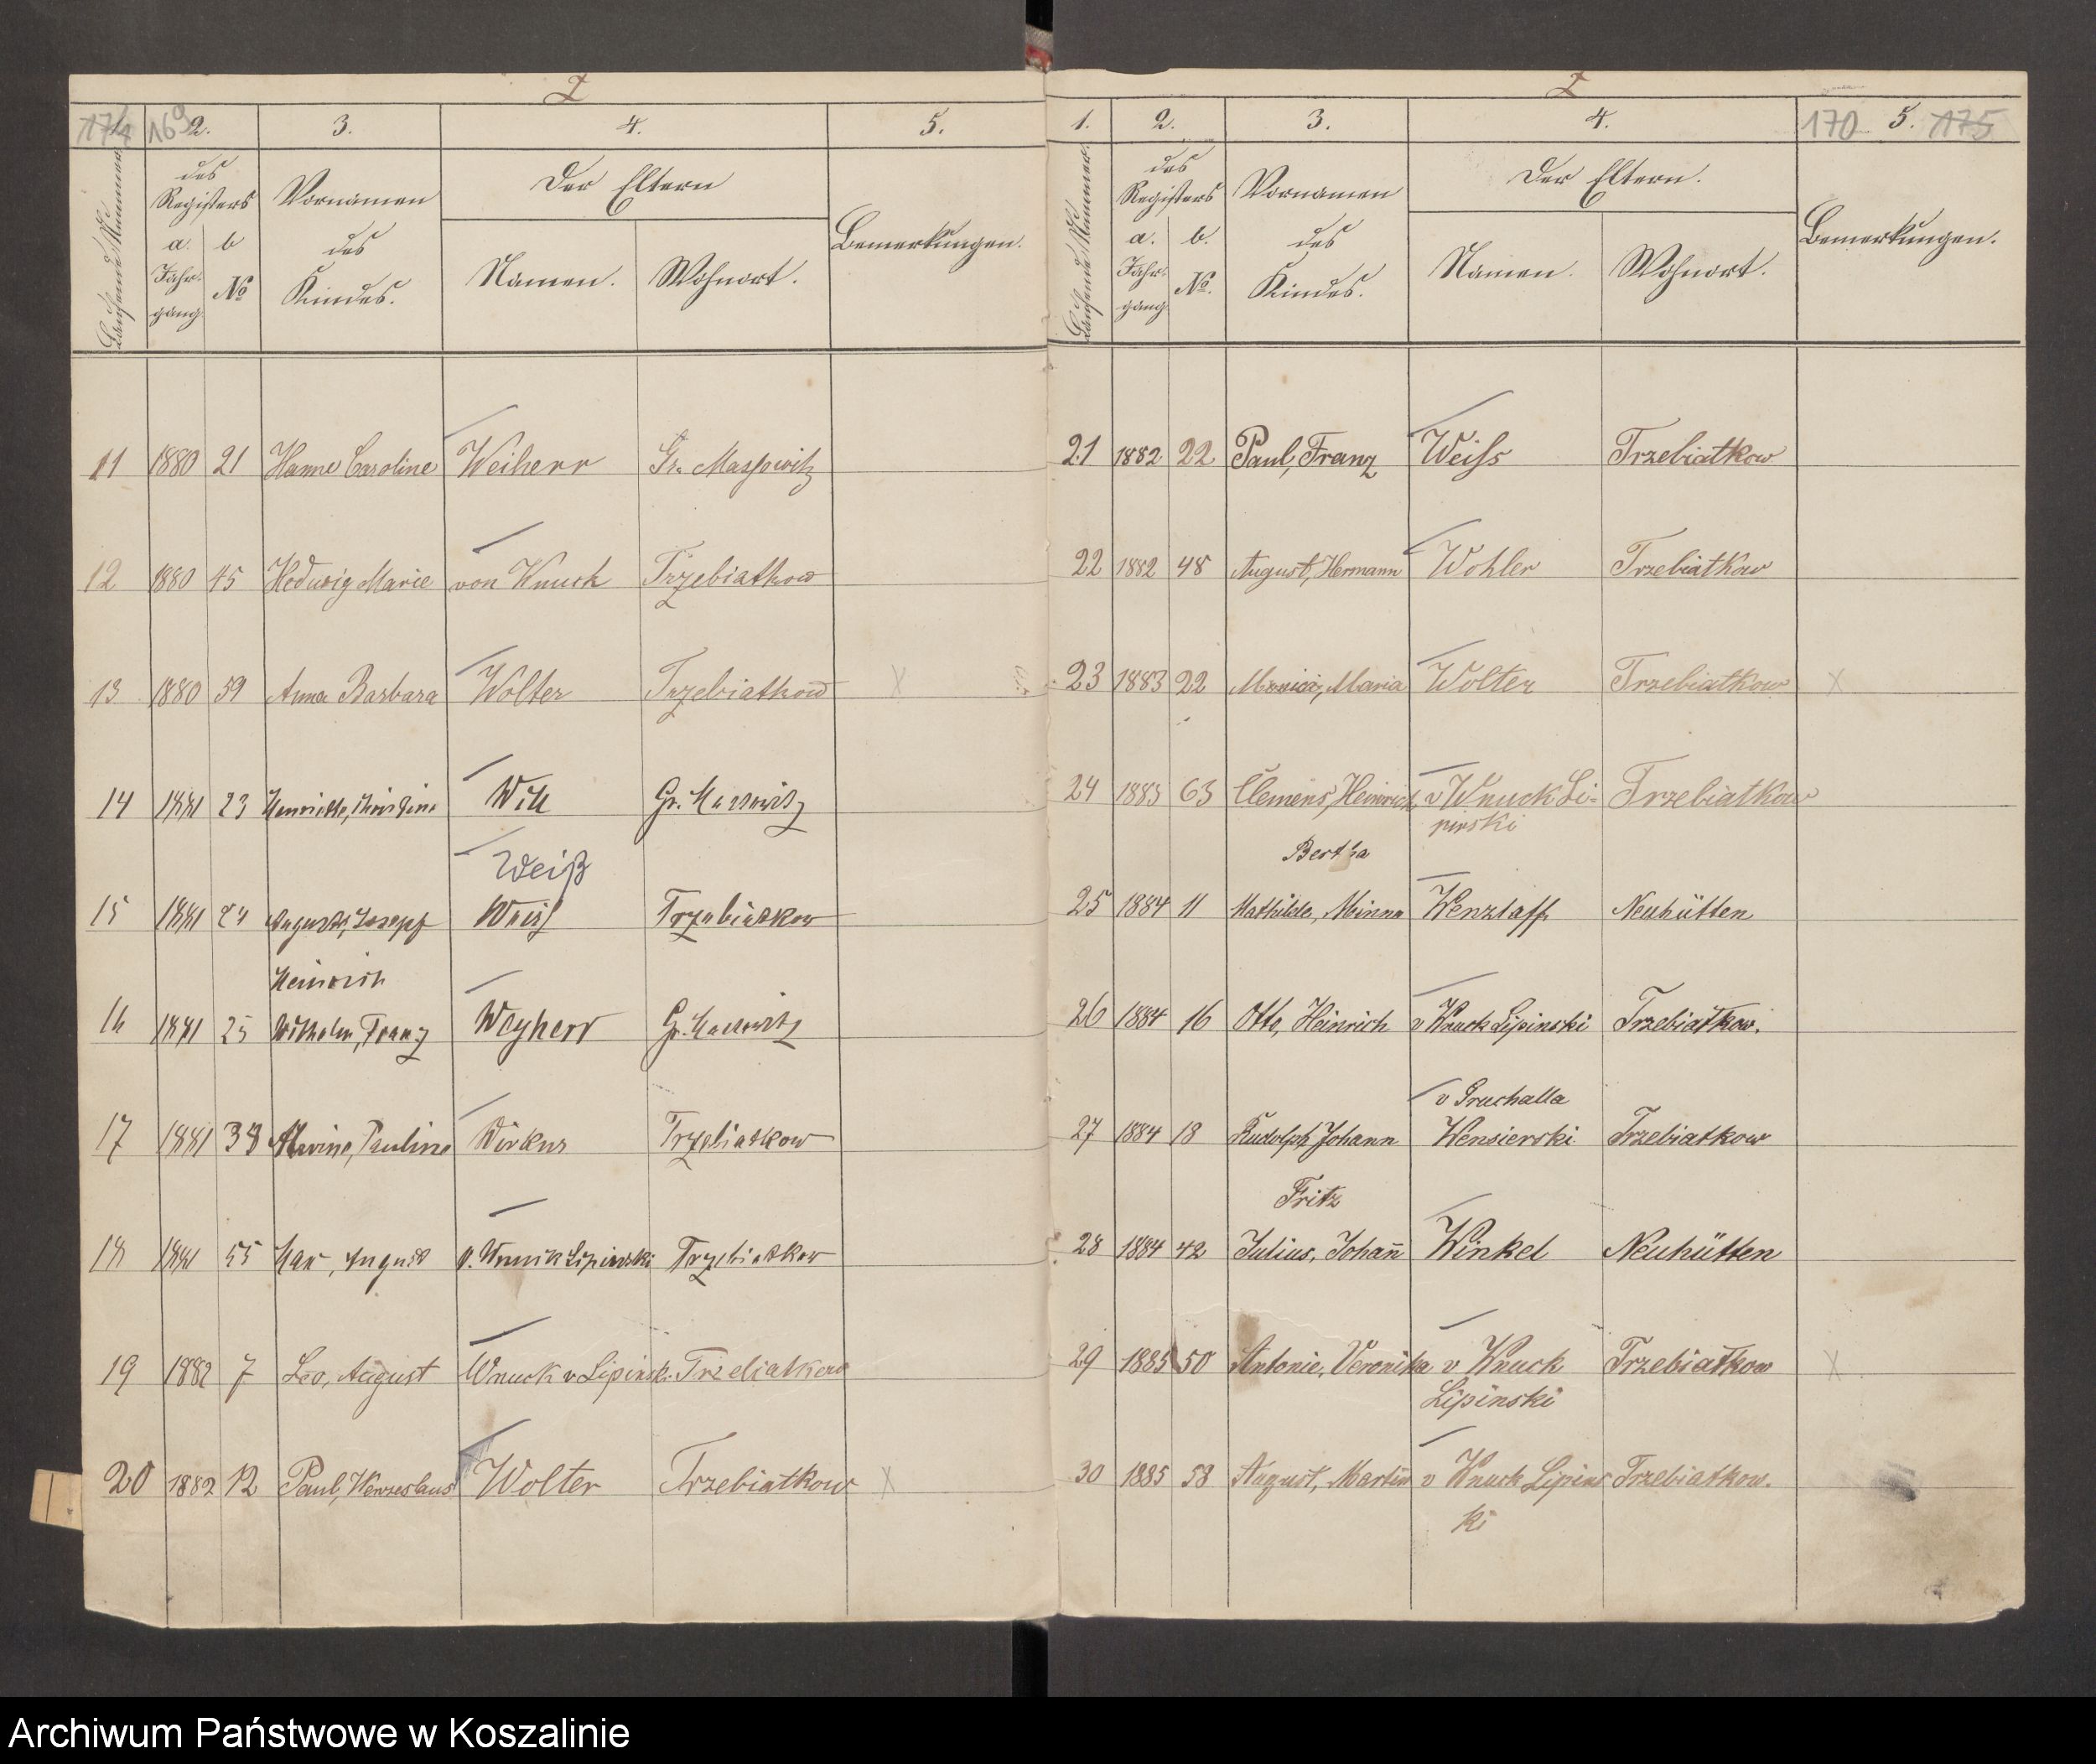 174 169 2. 3. 4. 5.
Laufende Nummer.
des Registers
a. Jahrgang.
b No
Vornamen des Kindes.
Der Eltern
Namen. Wohnort.
Bemerkungen.
11 1880 21 Hanne Caroline Weiherr Gr. Massowitz
12 1880 45 Hedwig Marie von Wnuck Trzebiatkow
13 1880 59 Anna Barbara Wolter Trzebiatkow X
14 1881 23 Henriette, Christine Will Gr. Massowitz
Weiß
15 1881 24 Auguste, Joseph Weiß Trzebiatkow
Heinrich
16 1881 25 Wilhelm, Franz Weyherr Gr. Massowitz
17 1881 38 Alwine, Pauline Wirkus Trzebiatkow
18 1881 55 Max, August v. Wnuk Lipinski Trzebiatkow
19 1882 7 Leo, August Wnuck v Lipinski Trzebiatkow
20 1882 12 Paul, Wenzeslaus Wolter Trzebiatkow X
1. 2. 3. 4. 170 5. 175
Laufende Nummer.
des Registers
a. Jahrgang.
b. No.
Vornamen des Kindes.
Der Eltern.
Namen. Wohnort.
Bemerkungen.
21 1882 22 Paul, Franz Weiss Trzebiatkow
22 1882 48 August, Hermann Wohler Trzebiatkow
23 1883 22 Maria Wolter Trzebiatkow X
24 1883 63 Clemens, Heinrich v Wnuck Li=
pinski Trzebiatkow
Bertha
25 1884 11 Mathilde, Minna Wenzlaff Neuhütten
26 1884 16 Otto, Heinrich v Wnuck Lipinski Trzebiatkow.
v Pruchalla
27 1884 18 Rudolph Johann Wensierski Trzebiatkow
Fritz
28 1884 42 Julius, Johan̄ Winkel Neuhütten
29 1885 50 Antonie, Veronika v Wnuck Trzebiatkow X
Lipinski
30 1885 58 August, Martin v Wnuck Lipins Trzebiatkow.
ki
Archiwum Państwowe w Koszalinie